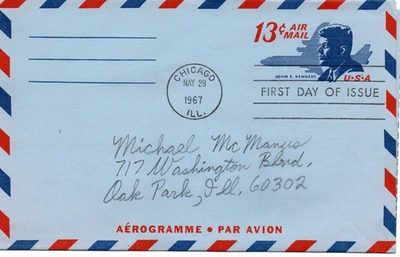 13¢ AIR
MAIL
JOHN F. KENNEDY
U·S·A
CHICAGO
MAY 29
1967
ILL.
FIRST DAY OF ISSUE
Michael McManus
717 Washington Blvd.
Oak Park, Ill. 60302
AÉROGRAMME • PAR AVION